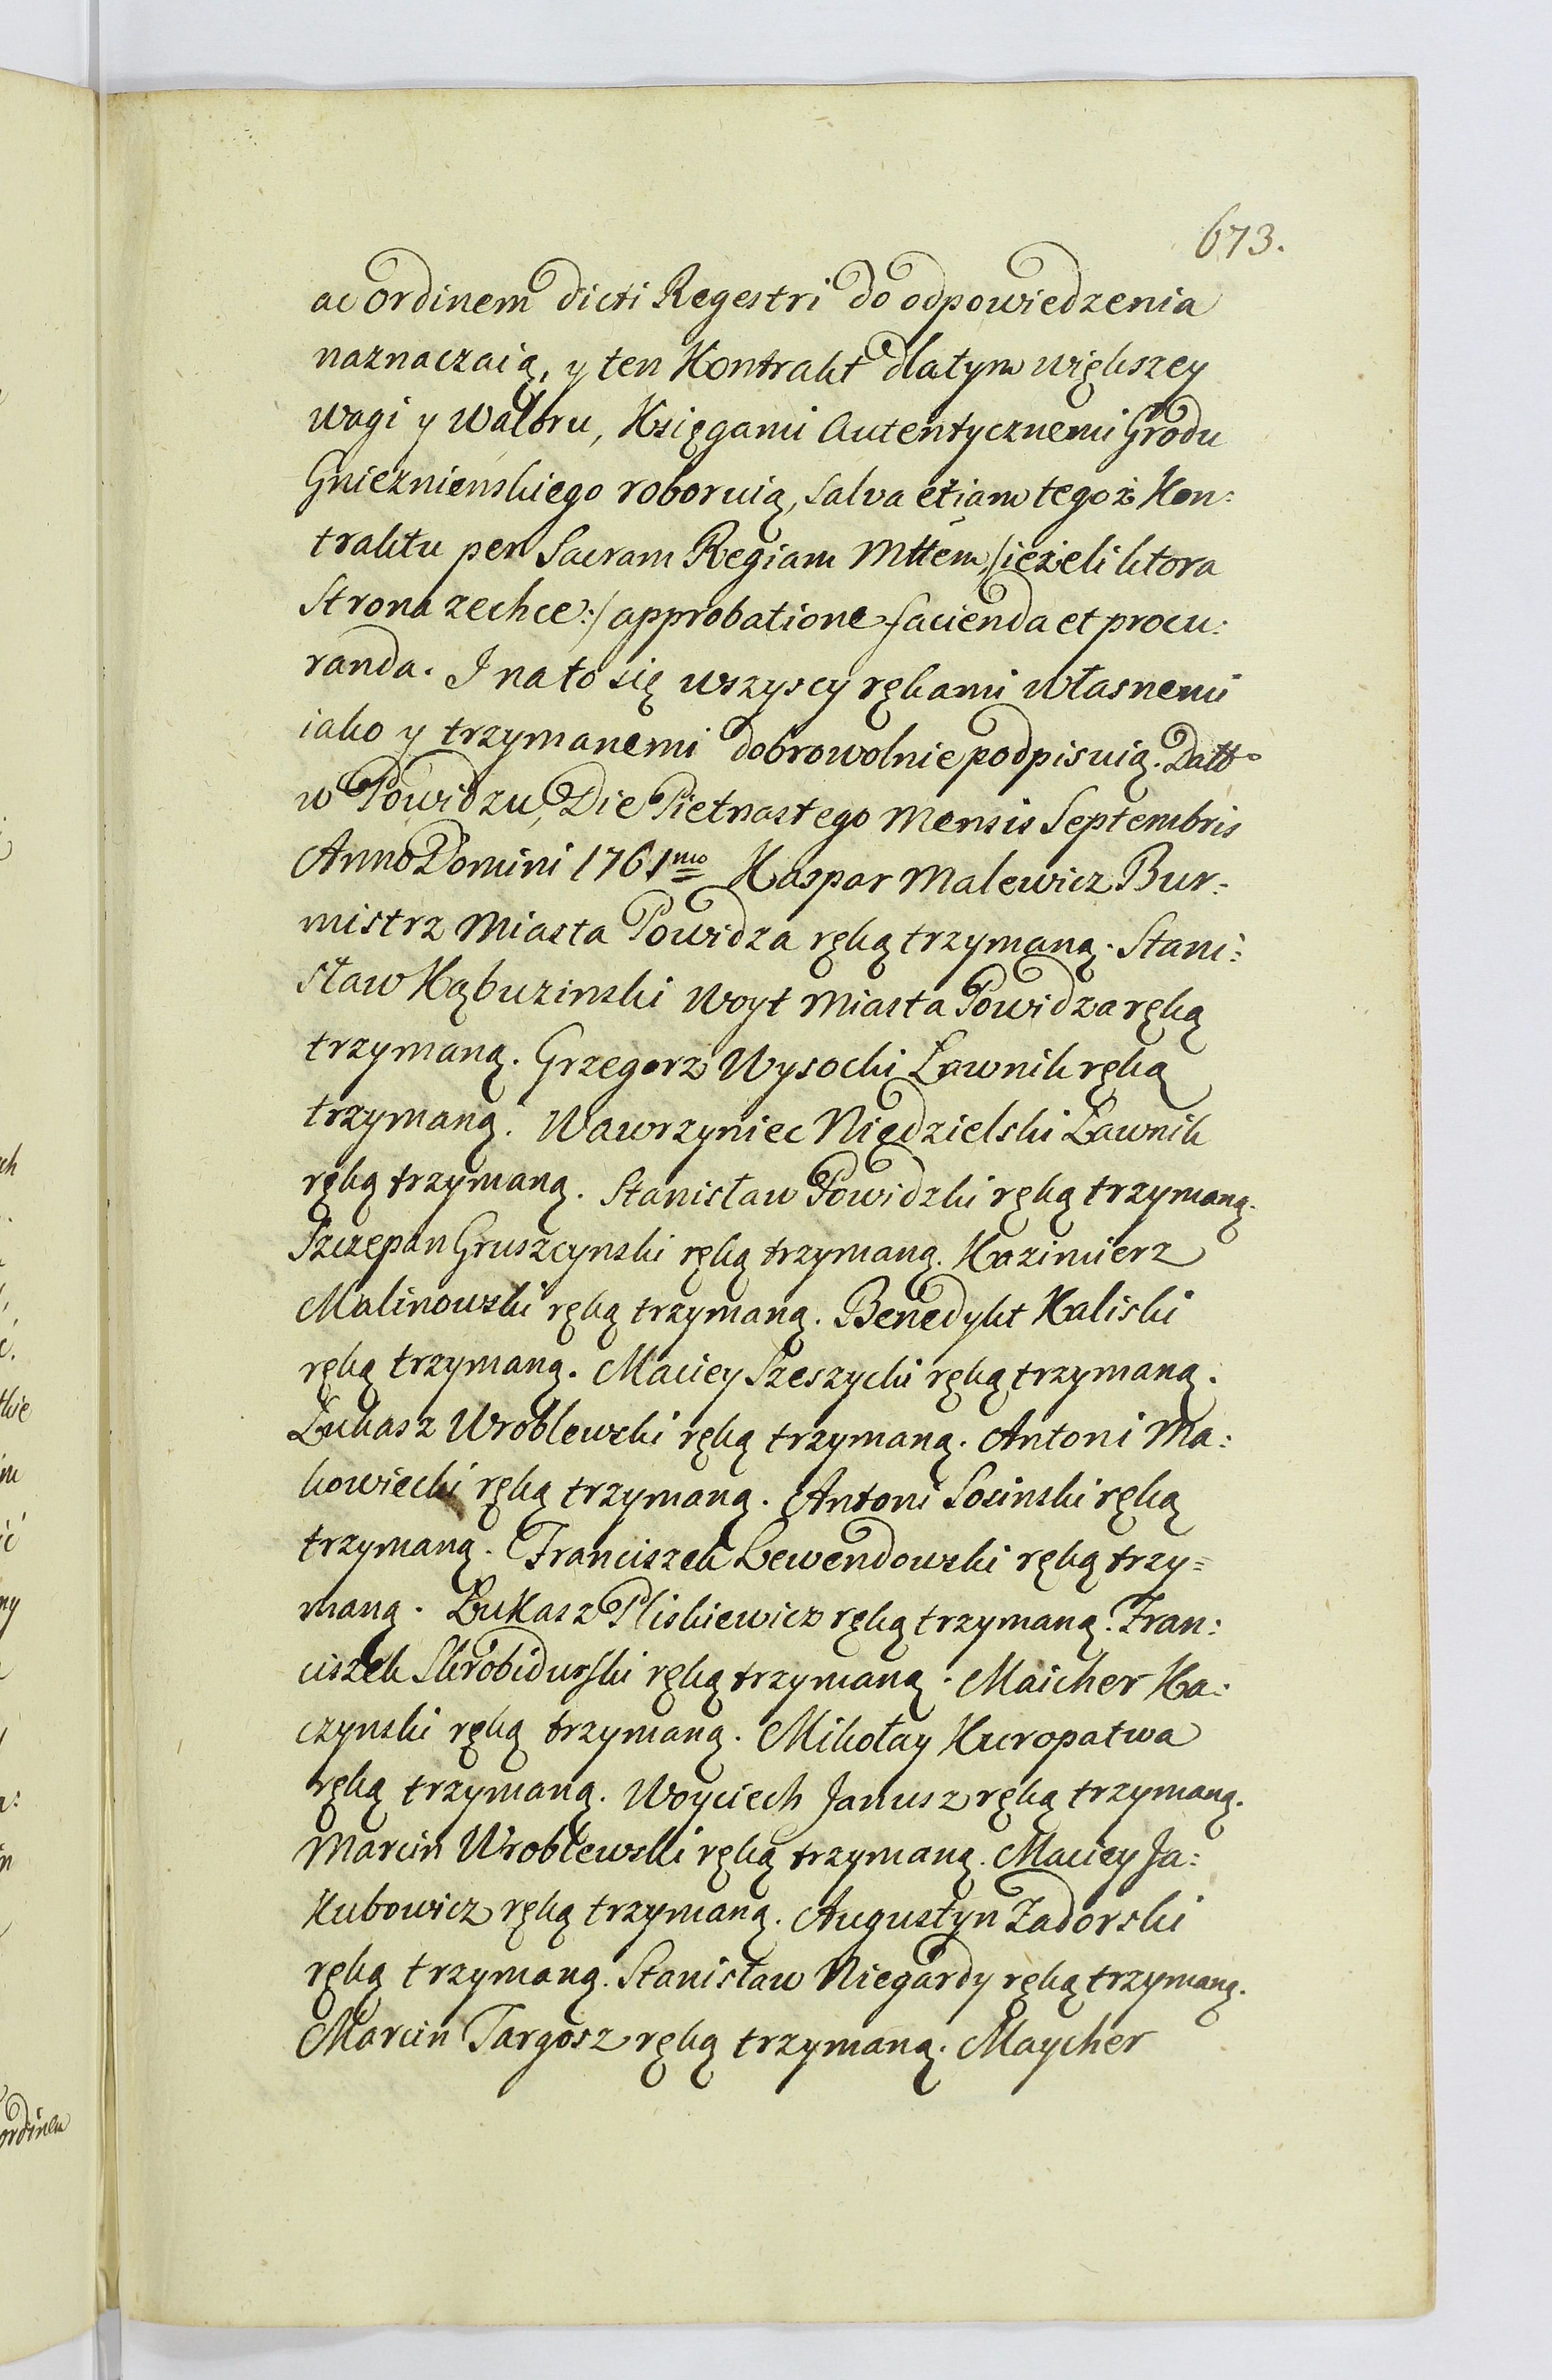 673.
ac ordinem dicti Regestri do odpowiedzenia
naznaczaią, y ten Kontrakt dla tym większey
wagi y waloru, Księgami Autentycznemi Grodu
Gnieznienskiego roboruią, salva etiam tegoż Kon:
traktu per Sacram Regiam Mttem /ieżeli ktora
Strona zechce:/ approbatione facienda et procu:
randa. I na to się wszyscy rękami własnemi
iako y trzymanemi dobrowolnie podpisuią. Datt
w Powidzu, Die Pietnastego Mensis Septembris
Anno Domini 1761mo Kaspar Malewicz Bur:
mistrz Miasta Powidza ręką trzymaną. Stani:
sław Kąbuzinski Woyt Miasta Powidza ręką
trzymaną. Grzegorz Wysocki Ławnik ręką
trzymaną. Wawrzyniec Niedzielski Ławnik
ręką trzymaną. Stanisław Powidzki ręką trzymaną.
Szczepan Gruszcynski ręką trzymaną. Kazimierz
Malinowski ręką trzymaną. Benedykt Kaliski
ręką trzymaną. Maciey Szeszycki ręką trzymaną.
Łukasz Wroblewski ręką trzymaną. Antoni Ma:
kowiecki ręką trzymaną. Antoni Sosinski ręką
trzymaną. Franciszek Lewendowski ręką trzy=
maną. Łukasz Pliskiewicz ręką trzymaną. Fran:
ciszek Skrobidurski ręką trzymaną. Maicher Ka:
czynski ręką trzymaną. Mikołay Kuropatwa
ręką trzymaną. Woyciech Janusz ręką trzymaną.
Marcin Wroblewski ręką trzymaną. Maciey Ja:
kubowicz ręką trzymaną. Augustyn Zadorski
ręką trzymaną. Stanisław Niegardy ręką trzymaną.
Marcin Targosz ręką trzymaną. Maycher
ordinem